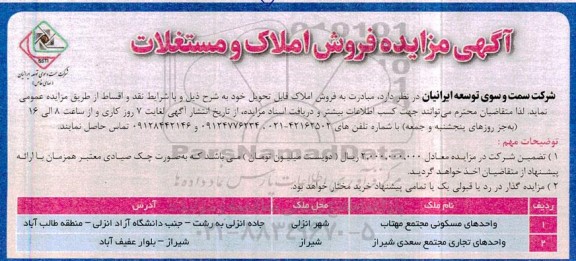 آگهی مزایده فروش املاک و مستغلات
شرکت سمت و سوی توسعه ایرانیان در نظر دارد، مبادرت به فروش املاک قابل تحویل خود به شرح ذیل و با شرایط نقد و اقساط از طریق مزایده عمومی
نماید. لذا متقاضیان محترم می‌توانند جهت کسب اطلاعات بیشتر و دریافت اسناد مزایده، از تاریخ انتشار آگهی لغایت 7 روز کاری و از ساعت 8 الی 16
(به‌جز روزهای پنجشنبه و جمعه) با شماره تلفن های 42162502-021، 09124776224 و 09128442146 تماس حاصل نمایند.
توضیحات مهم :
1) تضمین شرکت در مزایده معادل 2.000.000.000 ریال (دویست میلیون تومان) می باشد که به‌صورت چک صیادی معتبر همزمان با ارائه
پیشنهاد از متقاضیان اخذ خواهد گردید.
2) مزایده گذار در رد یا قبولی یک یا تمامی پیشنهاد خرید مختار خواهد بود.
ردیف نام ملک محل ملک آدرس
1 واحدهای مسکونی مجتمع مهتاب شهر انزلی جاده انزلی به رشت – جنب دانشگاه آزاد انزلی – منطقه طالب آباد
2 واحدهای تجاری مجتمع سعدی شیراز شیراز شیراز – بلوار عفیف آباد